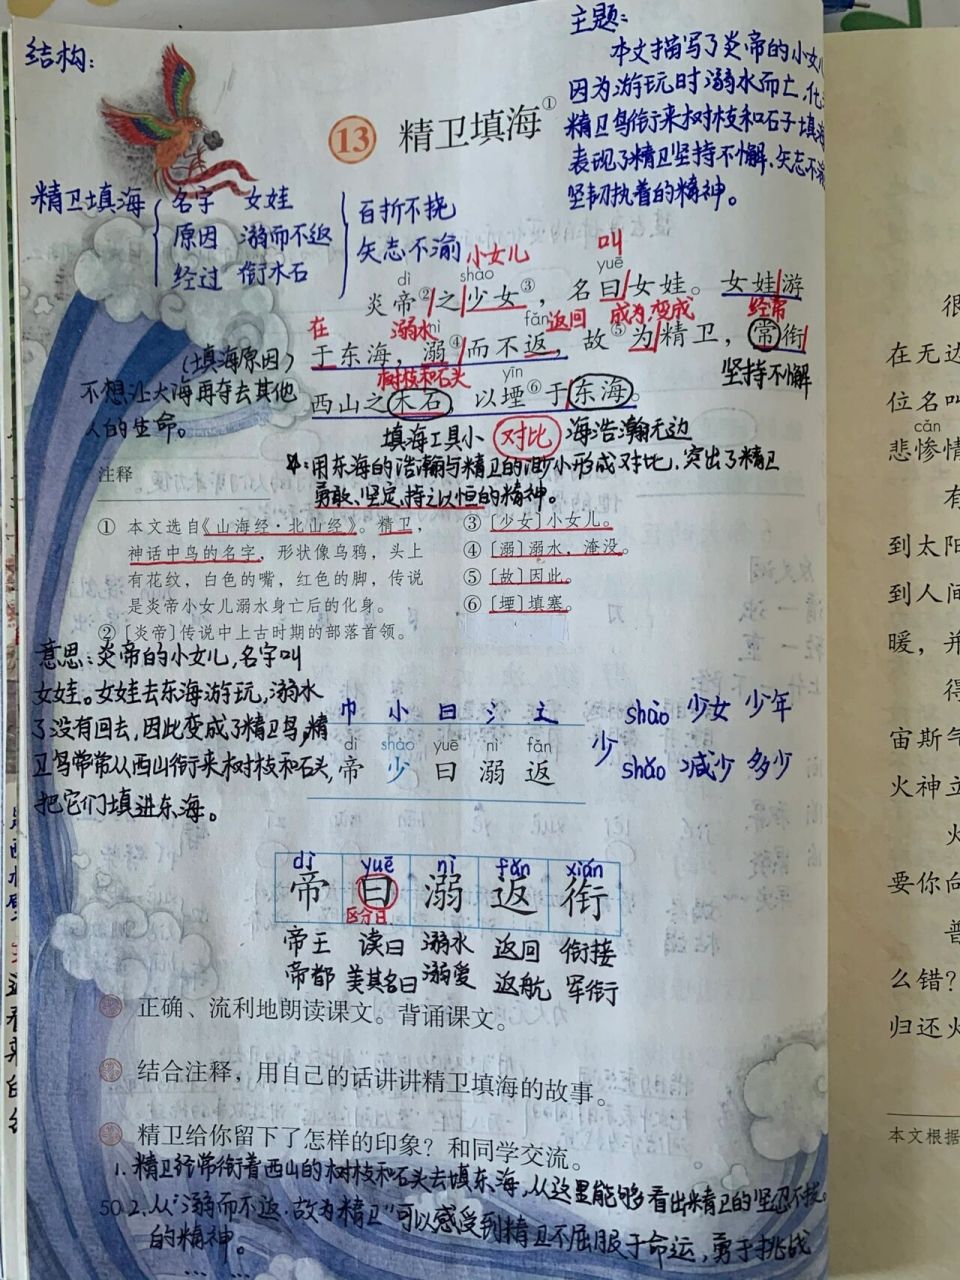 结构：
主题：
本文描写了炎帝的小女儿
因为游玩时溺水而亡，化
精卫鸟衔来树枝和石子填海
表现了精卫坚持不懈、矢志不渝
坚韧执着的精神。
13 精卫填海①
精卫填海
名字 女娃
原因 溺而不返
经过 衔水石
百折不挠
矢志不渝
小女儿 叫
dì shào yuē
炎帝②之少女③，名曰女娃。女娃游
在 溺水 返回 成为、变成 经常
nì fǎn
于东海，溺④而不返，故⑤为精卫，常衔
(填海原因)
不想让大海再夺去其他
人的生命。
树枝和石头 坚持不懈
yīn
西山之木石，以堙⑥于东海。
填海工具小 对比 海浩瀚无边
用东海的浩瀚与精卫的渺小形成对比，突出了精卫
勇敢、坚定、持之以恒的精神。
注释
① 本文选自《山海经·北山经》。精卫，
神话中鸟的名字，形状像乌鸦，头上
有花纹，白色的嘴，红色的脚，传说
是炎帝小女儿溺水身亡后的化身。
② [炎帝]传说中上古时期的部落首领。
③ [少女]小女儿。
④ [溺]溺水，淹没。
⑤ [故]因此。
⑥ [堙]填塞。
意思：炎帝的小女儿，名字叫
女娃。女娃去东海游玩，溺水
了没有回去，因此变成了精卫鸟，精
卫鸟常常从西山衔来树枝和石头，
把它们填进东海。
巾 小 曰 氵 辶
dì shào yuē nì fǎn
帝 少 曰 溺 返
少
shào 少女 少年
shǎo 减少 多少
dì yuē nì fǎn xián
帝 曰 溺 返 衔
区分日
帝王 读曰 溺水 返回 衔接
帝都 美其名曰 溺爱 返航 军衔
正确、流利地朗读课文。背诵课文。
结合注释，用自己的话讲讲精卫填海的故事。
精卫给你留下了怎样的印象？和同学交流。
1. 精卫经常衔着西山的树枝和石头去填东海，从这里能够看出精卫的坚忍不拔。
50
2. 从“溺而不返，故为精卫”可以感受到精卫不屈服于命运，勇于挑战
的精神。
…… ……
很
在无边
位名叫
cǎn
悲惨情
有
到太阳
到人间
暖，并
得
宙斯气
火神立
火
要你向
普
么错？
归还火
本文根据